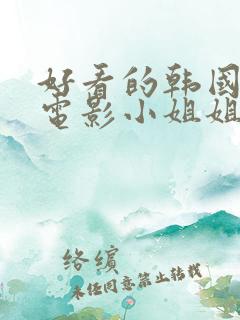 好看的韩国
電影小姐姐
络缤
未经同意禁止转载